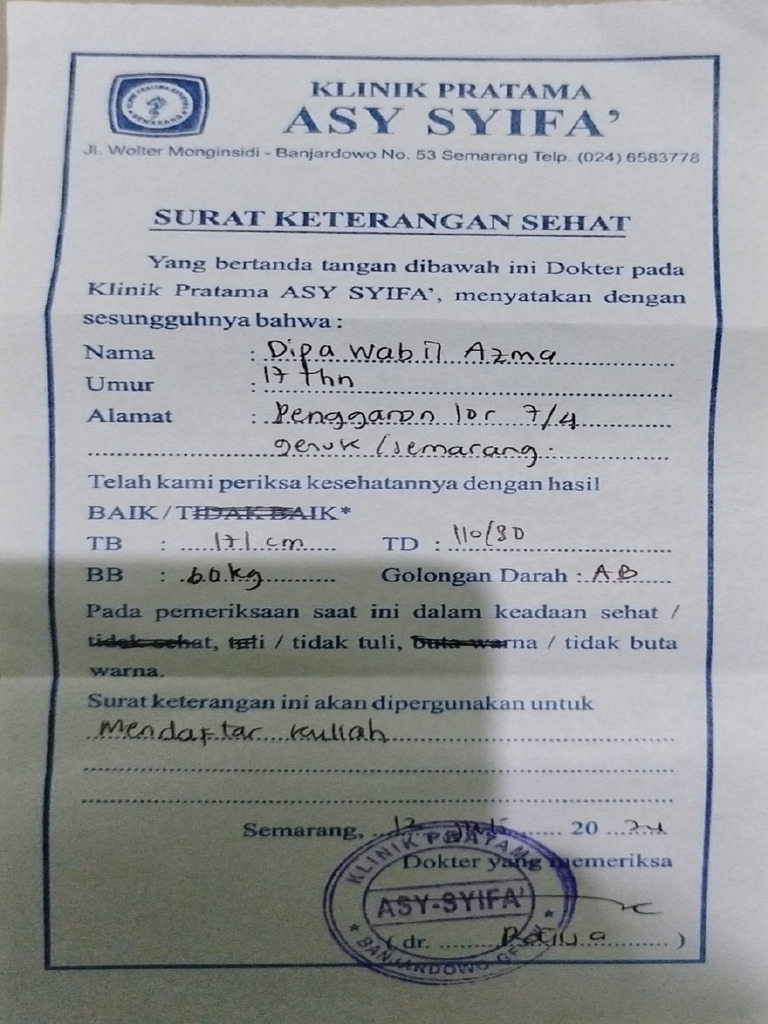 KLINIK PRATAMA
ASY SYIFA'
Jl. Wolter Monginsidi - Banjardowo No. 53 Semarang Telp. (024) 6583778
SURAT KETERANGAN SEHAT
Yang bertanda tangan dibawah ini Dokter pada
Klinik Pratama ASY SYIFA', menyatakan dengan
sesungguhnya bahwa :
Nama : Dipa Wabil Azma
Umur : 17 thn
Alamat : Penggaron lor 7/4
genuk / semarang.
Telah kami periksa kesehatannya dengan hasil
BAIK / TIDAK BAIK*
TB : 171 cm TD : 110/80
BB : 60 kg Golongan Darah : AB
Pada pemeriksaan saat ini dalam keadaan sehat /
tidak sehat, tuli / tidak tuli, buta warna / tidak buta
warna.
Surat keterangan ini akan dipergunakan untuk
Mendaftar kuliah
Semarang, 20 24
Dokter yang memeriksa
KLINIK PRATAMA
ASY-SYIFA'
BANJARDOWO
( dr. )